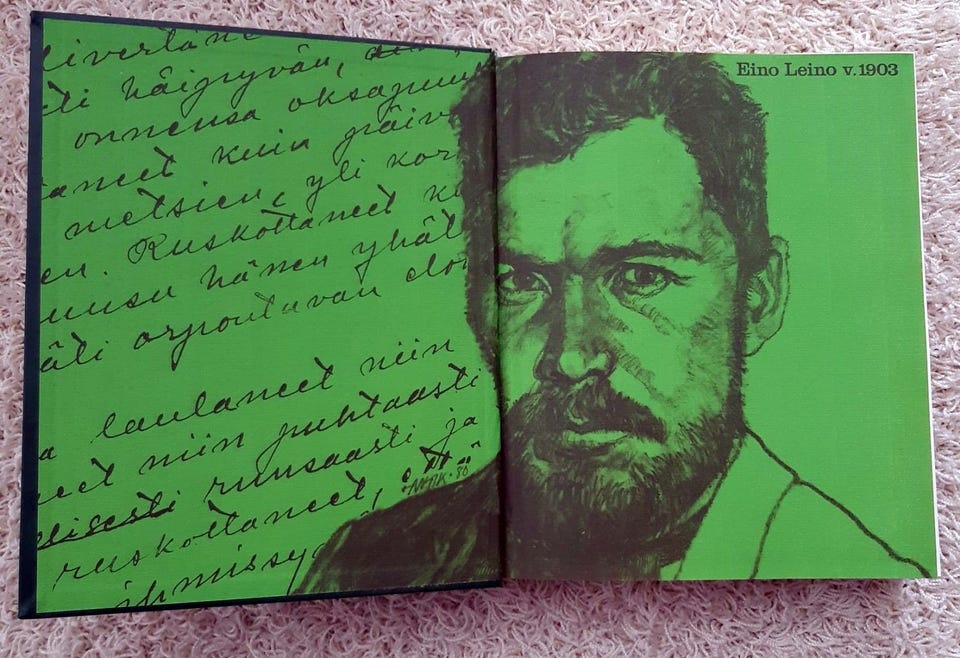 liverläne
ti häipyvän,
onnensa oksapuu
taneet kuin päiv
metsien, yli kor
en. Ruskottaneet ku
uusu hänen yhäl
äti orpoutuvan elon
a laulaneet niin
eet niin puhtaasti
ellisesti runsaasti ja
ruskottaneet,
ihmissy
80
Eino Leino v.1903